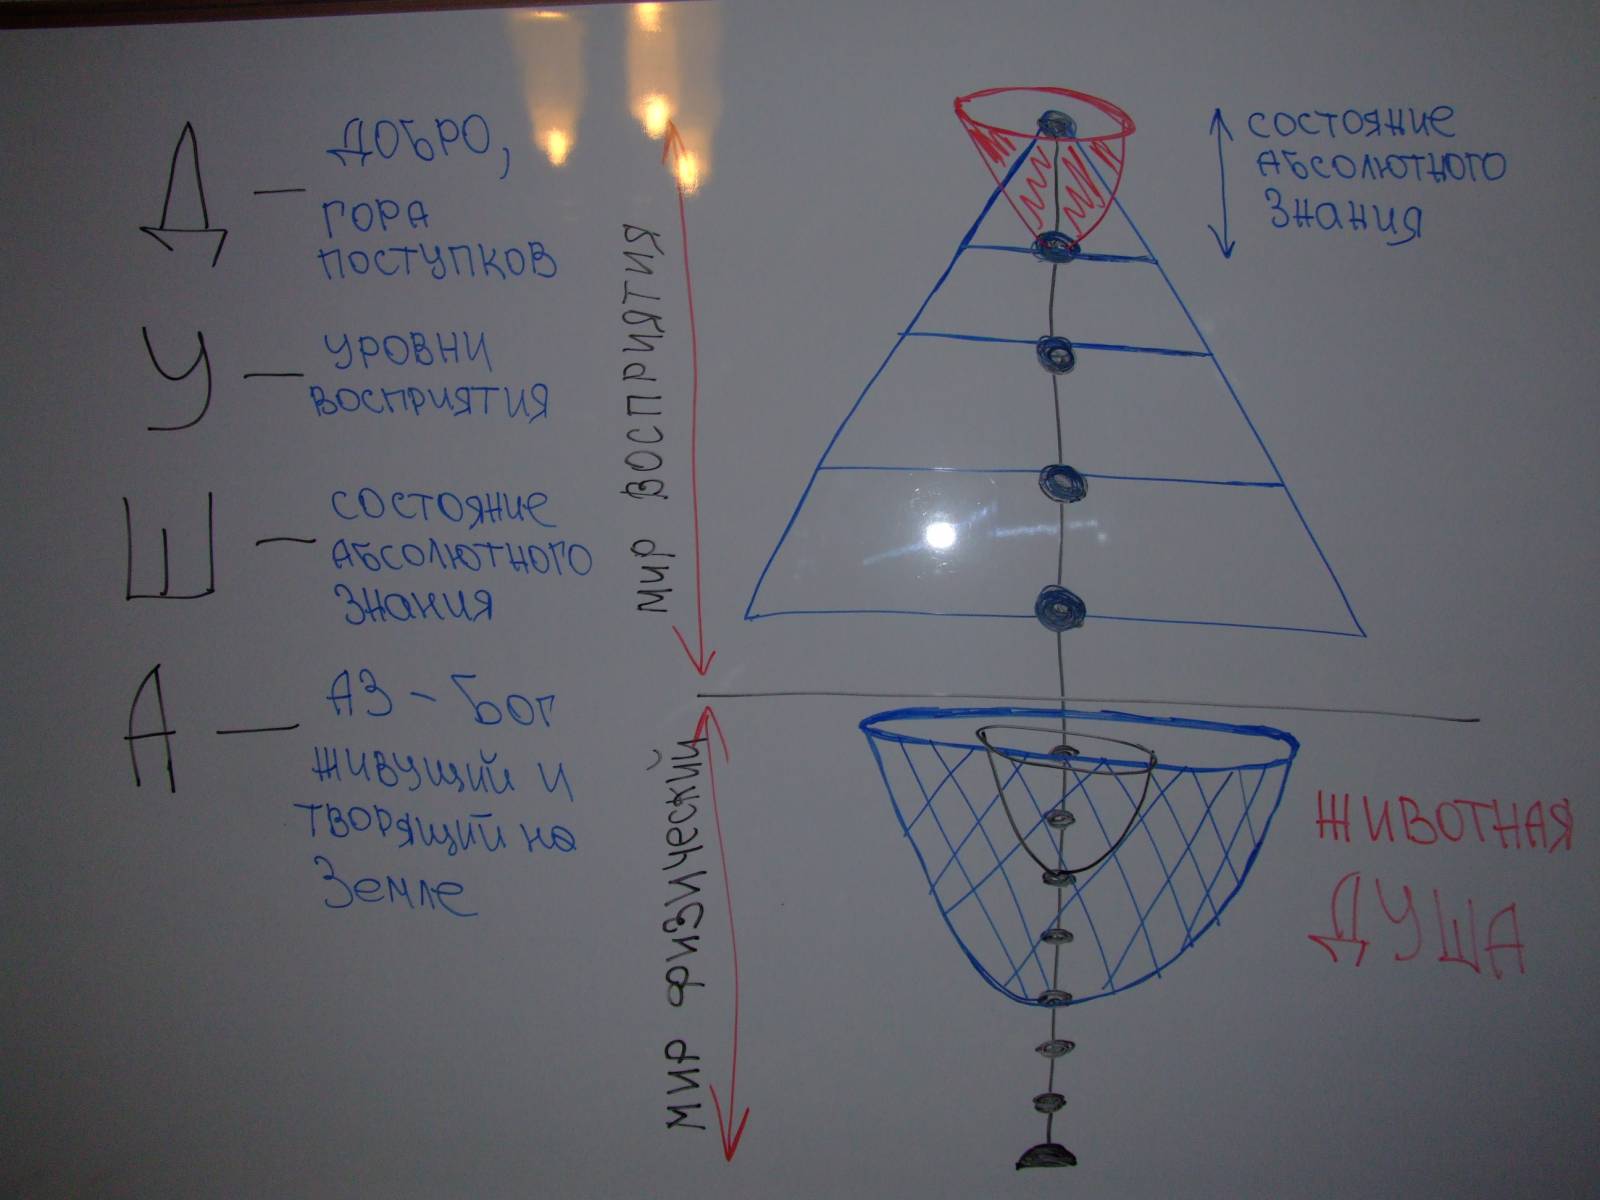 Д — ДОБРО,
ГОРА
ПОСТУПКОВ
У — УРОВНИ
ВОСПРИЯТИЯ
Ш — СОСТОЯНИЕ
АБСОЛЮТНОГО
ЗНАНИЯ
А — АЗ - БОГ
ЖИВУЩИЙ И
ТВОРЯЩИЙ НА
ЗЕМЛЕ
МИР ВОСПРИЯТИЯ
МИР ФИЗИЧЕСКИЙ
СОСТОЯНИЕ
АБСОЛЮТНОГО
ЗНАНИЯ
ЖИВОТНАЯ
ДУША